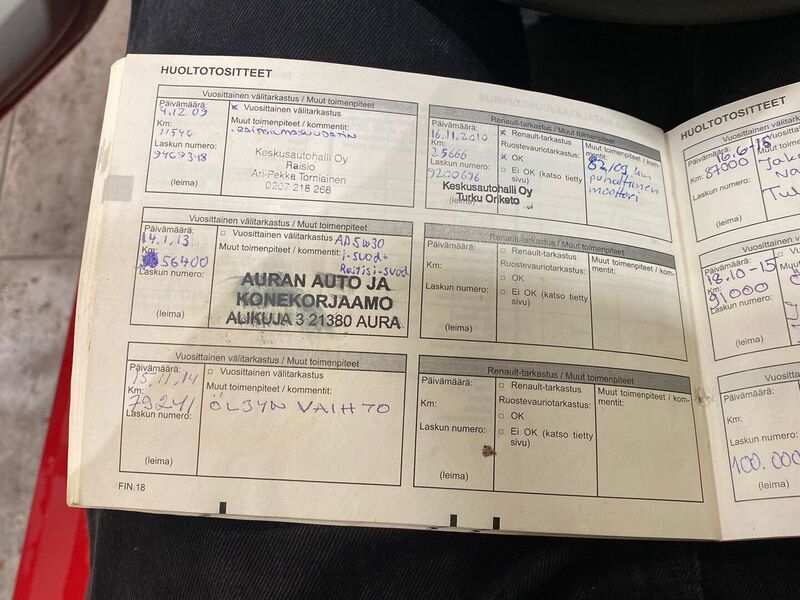 HUOLTOTOSITTEET
Vuosittainen välitarkastus / Muut toimenpiteet
Päivämäärä:
4.12.09
Km:
11546
Laskun numero:
(leima)
x Vuosittainen välitarkastus
Muut toimenpiteet / kommentit:
- RAITISILMASUODATIN
Keskusautohalli Oy
Raisio
Ari-Pekka Torniainen
0207 218 268
Renault-tarkastus / Muut toimenpiteet
Päivämäärä:
16.11.2010
Km:
25666
Laskun numero:
9200696
(leima)
x Renault-tarkastus
Ruostevauriotarkastus:
x OK
Ei OK (katso tietty
sivu)
Keskusautohalli Oy
Turku Oriketo
Muut toimenpiteet / kom-
mentit:
puhaltimen
moottori
Vuosittainen välitarkastus / Muut toimenpiteet
Päivämäärä:
14.1.13
Km:
56400
Laskun numero:
(leima)
Vuosittainen välitarkastus
Muut toimenpiteet / kommentit:
AD5w30
i-suod+
Raitisi-suod
AURAN AUTO JA
KONEKORJAAMO
ALIKUJA 3 21380 AURA
Renault-tarkastus / Muut toimenpiteet
Päivämäärä:
Km:
Laskun numero:
(leima)
Renault-tarkastus
Ruostevauriotarkastus:
OK
Ei OK (katso tietty
sivu)
Muut toimenpiteet / kom-
mentit:
Vuosittainen välitarkastus / Muut toimenpiteet
Päivämäärä:
15.11.14
Km:
79241
Laskun numero:
(leima)
Vuosittainen välitarkastus
Muut toimenpiteet / kommentit:
ÖLJYN VAIHTO
Renault-tarkastus / Muut toimenpiteet
Päivämäärä:
Km:
Laskun numero:
(leima)
Renault-tarkastus
Ruostevauriotarkastus:
OK
Ei OK (katso tietty
sivu)
Muut toimenpiteet / kom-
mentit:
FIN.18
HUOLTOTOSITTEET
Vuosittainen
Päivämäärä:
16.6-15
Km:
87000
Laskun numero:
(leima)
Vuosittainen
Päivämäärä:
18.10-15
Km:
91000
Laskun numero:
(leima)
Vuosittai
Päivämäärä:
Km:
Laskun numero:
100.000
(leima)